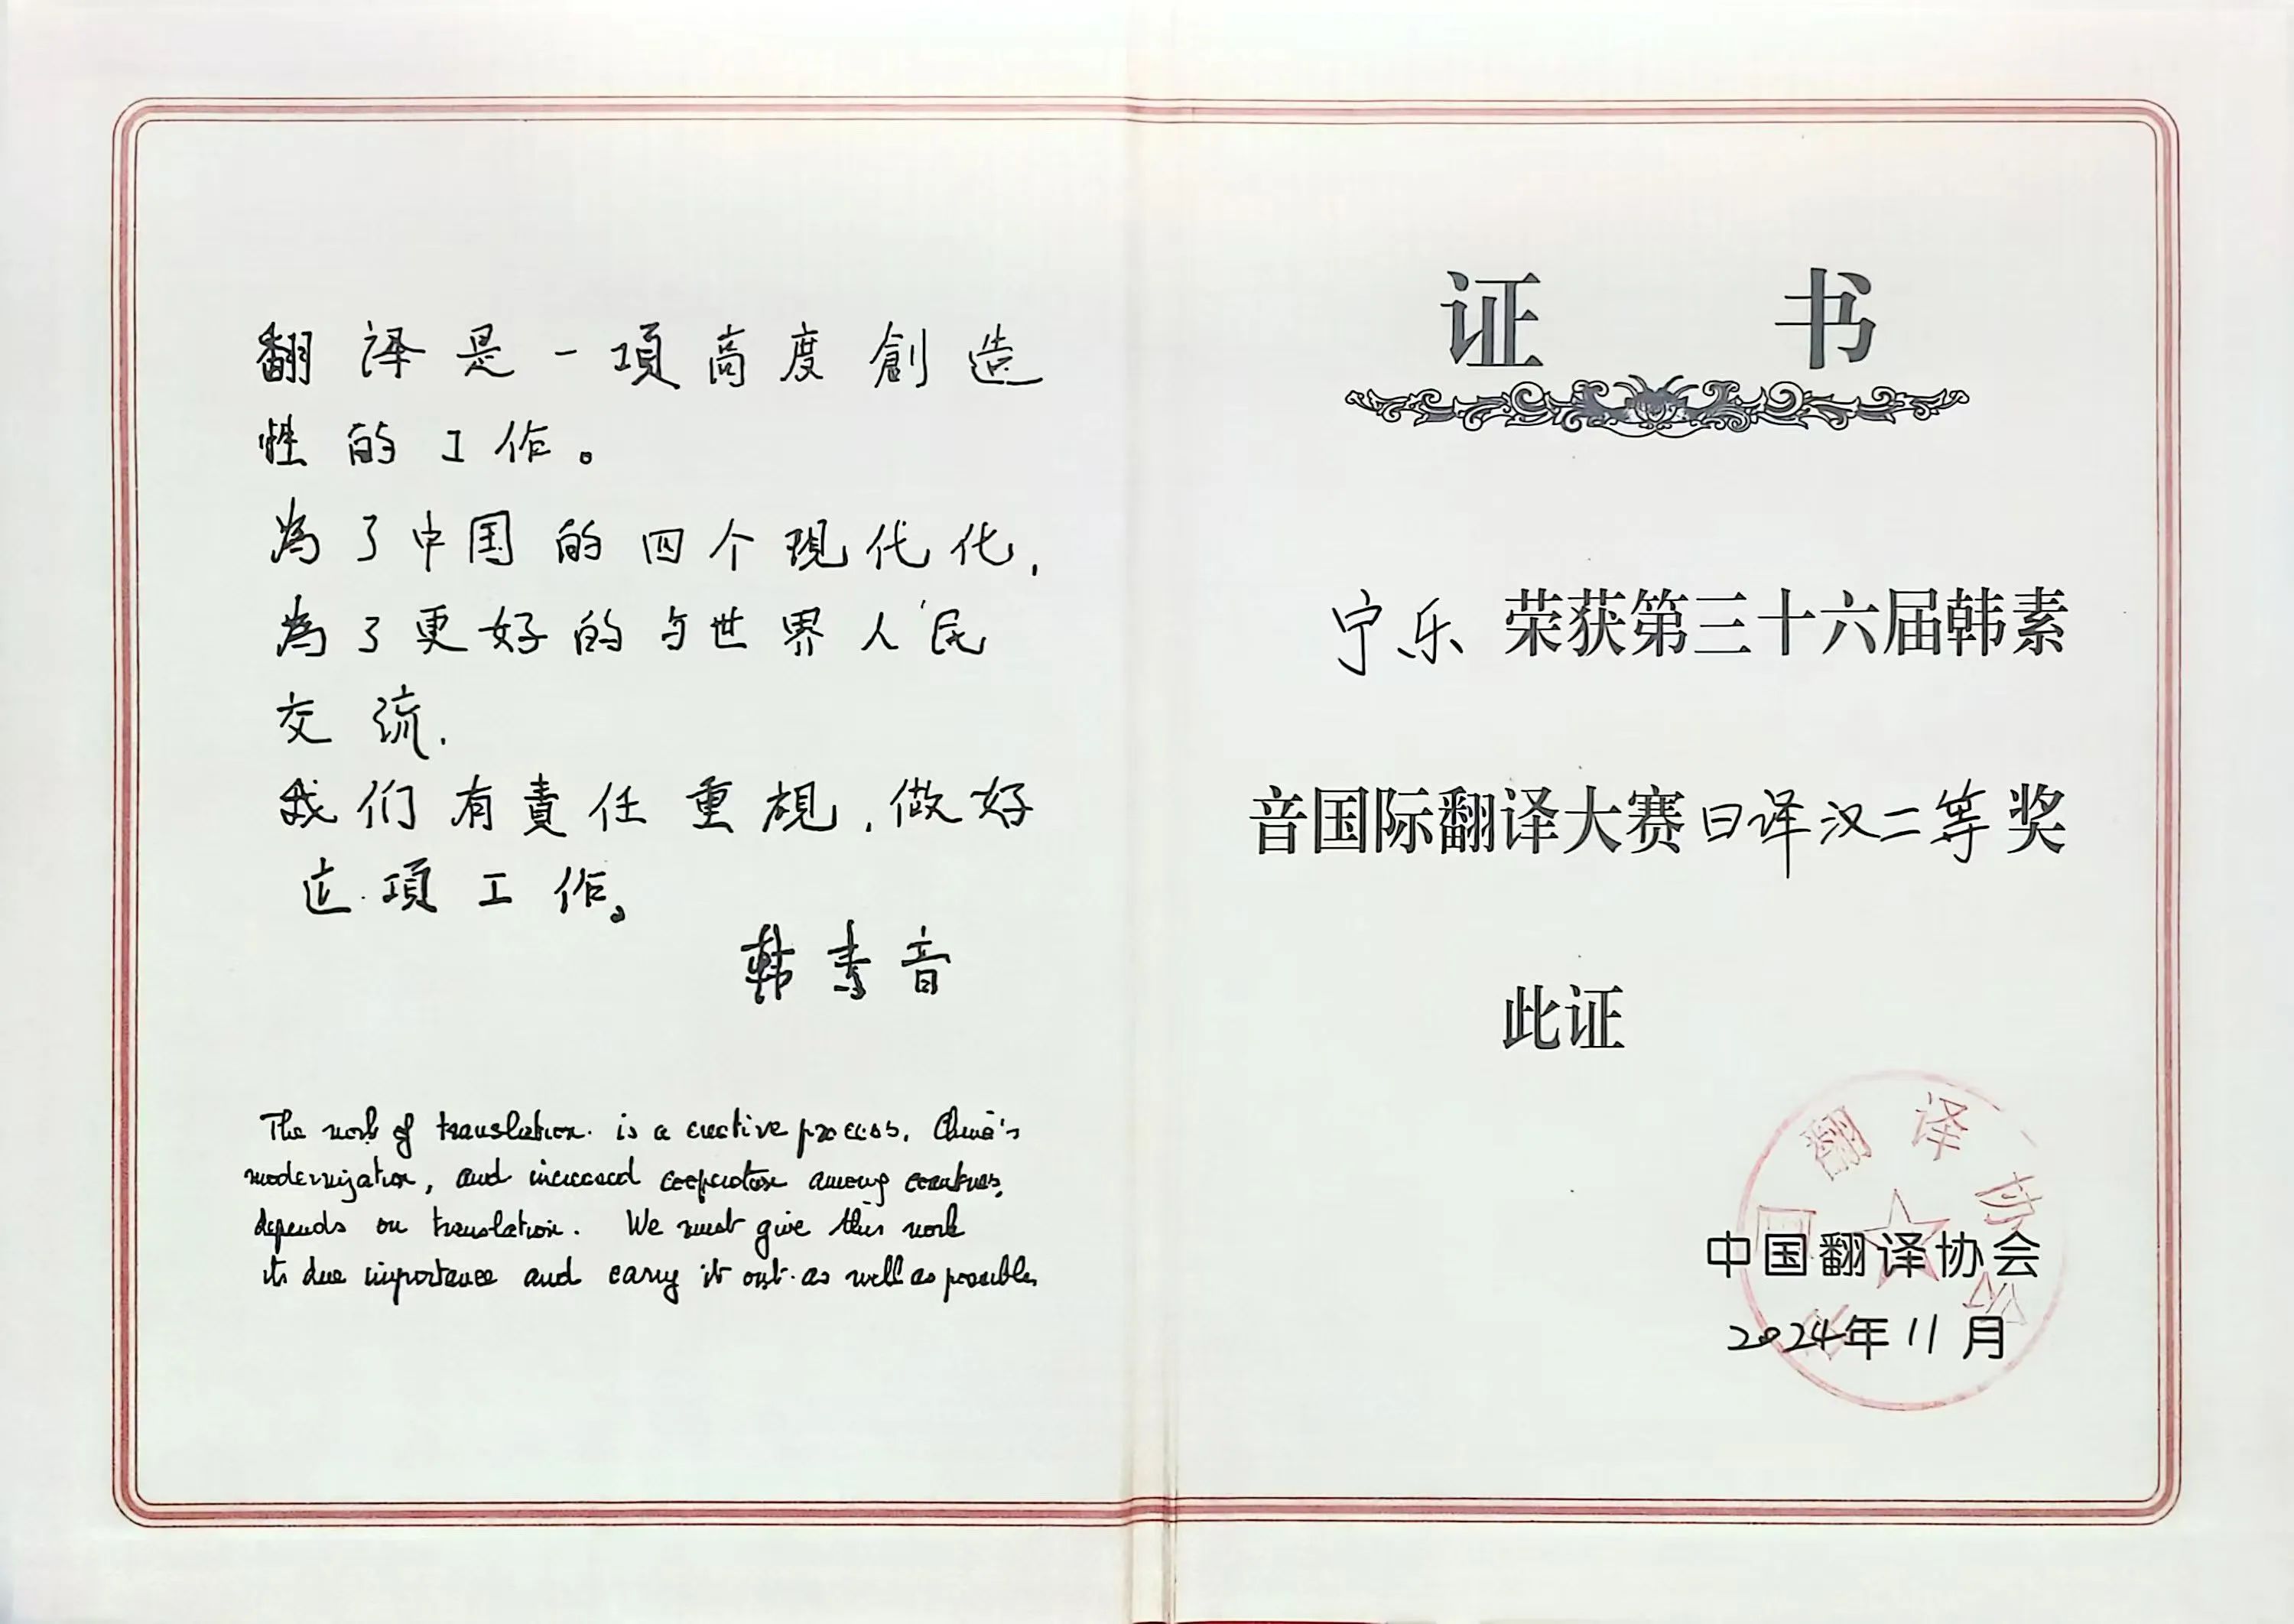 翻译是一項高度創造
性的工作。
為了中国的四个現代化,
為了更好的与世界人民
交流,
我们有責任重視,做好
这項工作。
韩素音
The work of translation is a creative process. China's
modernization, and increased cooperation among countries,
depends on translation. We must give this work
its due importance and carry it out as well as possible.
证 书
宁乐 荣获第三十六届韩素
音国际翻译大赛日译汉二等奖
此证
中国翻译协会
中国翻译协会
2024年11月